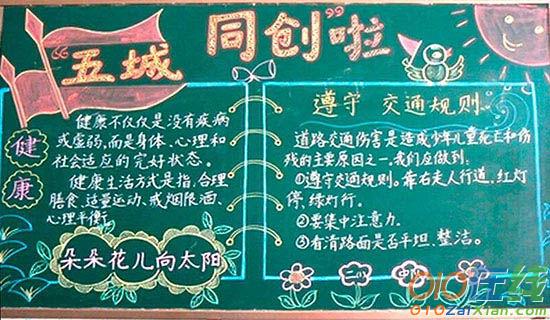 “五城同创”啦
健康
健康不仅仅是没有疾病
或虚弱,而是身体、心理和
社会适应的完好状态。
健康生活方式是指,合理
膳食、适量运动、戒烟限酒、
心理平衡。
朵朵花儿向太阳
遵守 交通规则。
道路交通伤害是造成少年儿童死亡和伤
残的主要原因之一,我们应做到:
①遵守交通规则。靠右走人行道,红灯
停,绿灯行。
②要集中注意力.
③看清路面是否平坦、整洁。
二(1) 中队
010在线
010zaixian.com